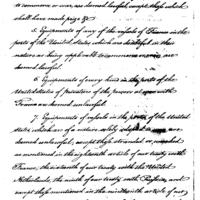 to commerce or war, are deemed lawful, except those which
shall have made prize &c
5. Equipments of any of the vessels of France in the
ports of the United States, which are doubtful in their
nature as being applicable to commerce or war, are
deemed lawful.
6. Equipments of every kind in the ports of the
United States of privateers of the powers at war with
France are deemed unlawful.
7. Equipments of vessels in the ports of the United
States, which are of a nature solely adapted to war, are
deemed unlawful; except those stranded or wrecked
as mentioned in the eighteenth article of our treaty with
France, the sixteenth of our treaty with the United
Netherlands, the ninth of our treaty with Prussia, and
except those mentioned in the nineteenth article of our